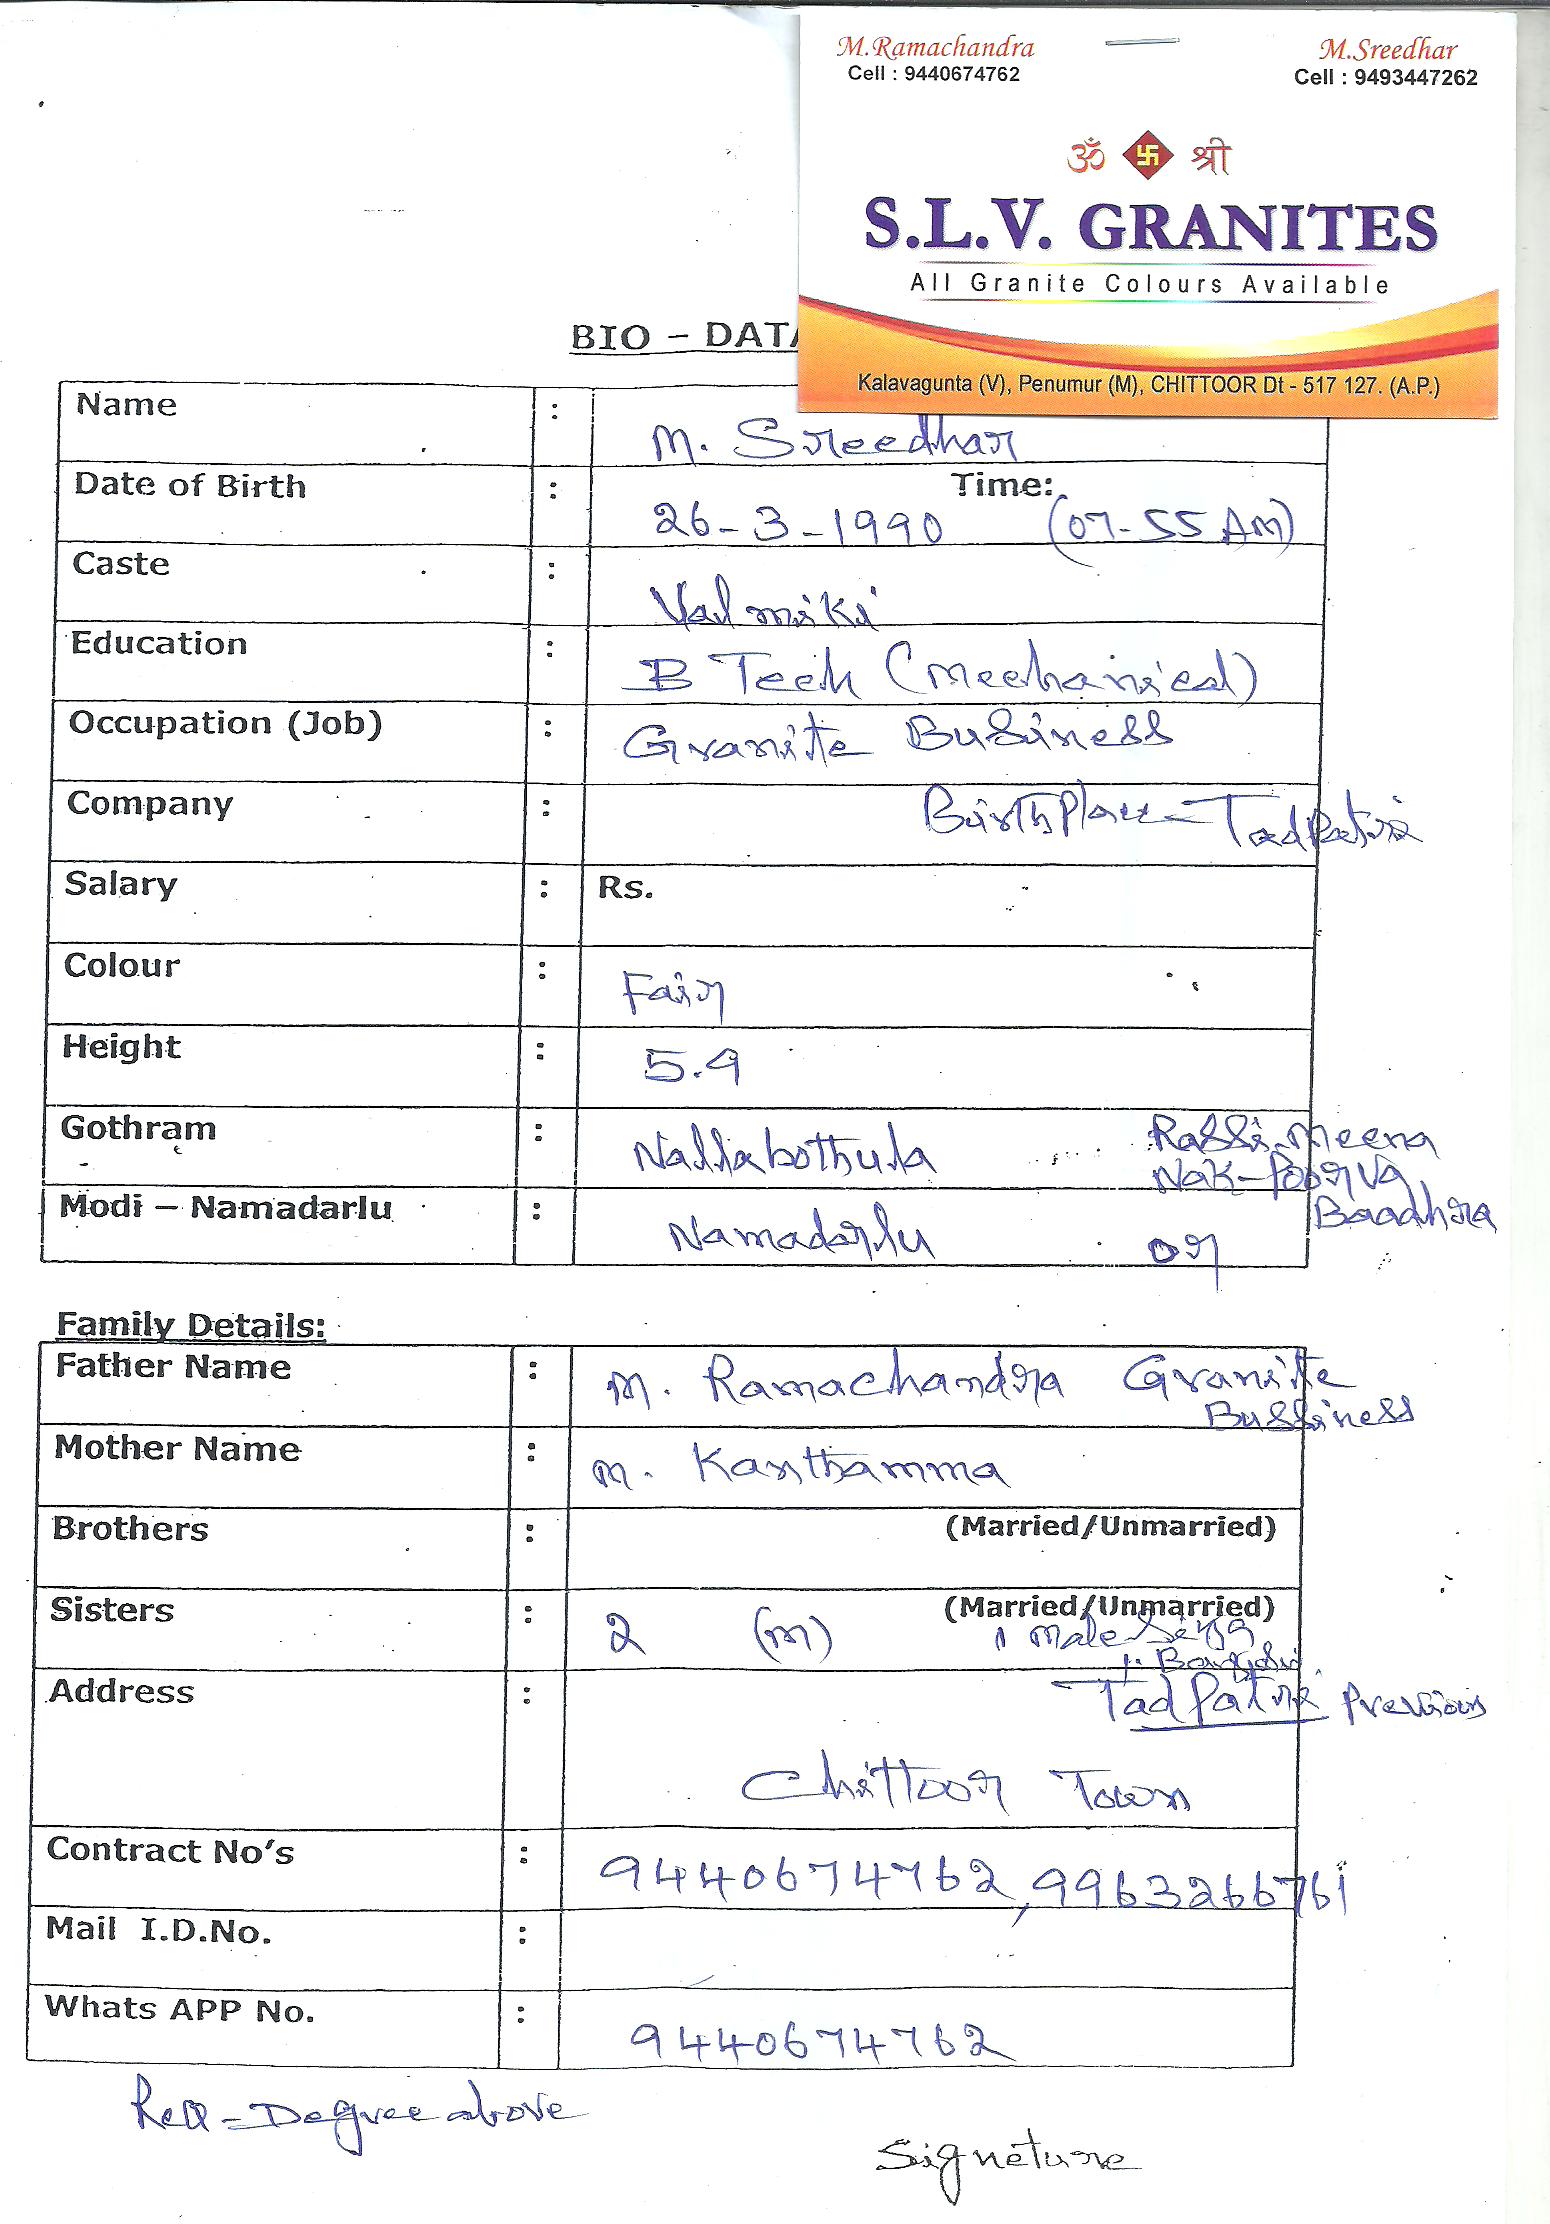 M.Ramachandra M.Sreedhar
Cell : 9440674762 Cell : 9493447262
ॐ 卐 श्री
S.L.V. GRANITES
All Granite Colours Available
Kalavagunta (V), Penumur (M), CHITTOOR Dt - 517 127. (A.P.)
BIO - DATA
Name : M. Sreedhar
Date of Birth : Time:
26-3-1990 (07-55 AM)
Caste : Valmiki
Education : B Tech (Mechanical)
Occupation (Job) : Granite Business
Company : Birth Place - Tadpatri
Salary : Rs.
Colour : Fair
Height : 5.9
Gothram : Nallabothula Rassi-Meena
Nak-Poorva
Baadhra
Modi – Namadarlu : Namadarlu or
Family Details:
Father Name : M. Ramachandra Granite
Bussiness
Mother Name : M. Kanthamma
Brothers : (Married/Unmarried)
Sisters : 2 (m) (Married/Unmarried)
1 Male
1.
Address : Tadpatri Previous
Chittoor Town
Contract No's : 9440674762, 9963266761
Mail I.D.No. :
Whats APP No. : 9440674762
ReQ - Degree above
Signeture